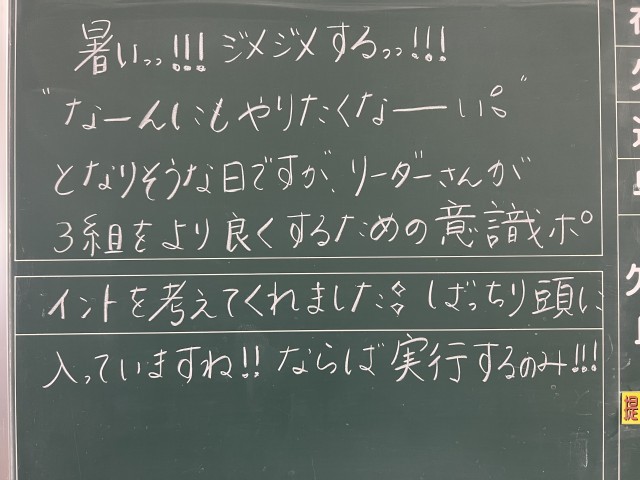 暑いっっ!!! ジメジメするっっ!!!
"なーんにもやりたくなーーい。"
となりそうな日ですが、リーダーさんが
3組をより良くするための意識ポ
イントを考えてくれました。 ばっちり頭に
入っていますね!! ならば実行するのみ!!!
提